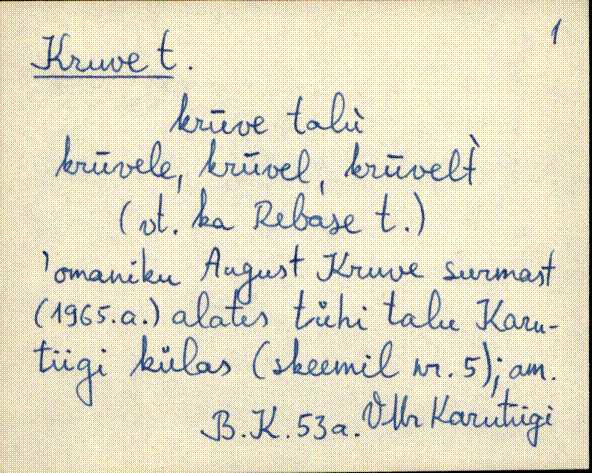 1
Kruve t.
krūve talù
krūvele, krūvel, krūvelt̀
(vt. ka Rebase t.)
'omaniku August Kruve surmast
(1965.a.) alates tühi talu Karu-
tiigi külas (skeemil nr. 5); am.
B.K. 53a. VMr Karutiigi